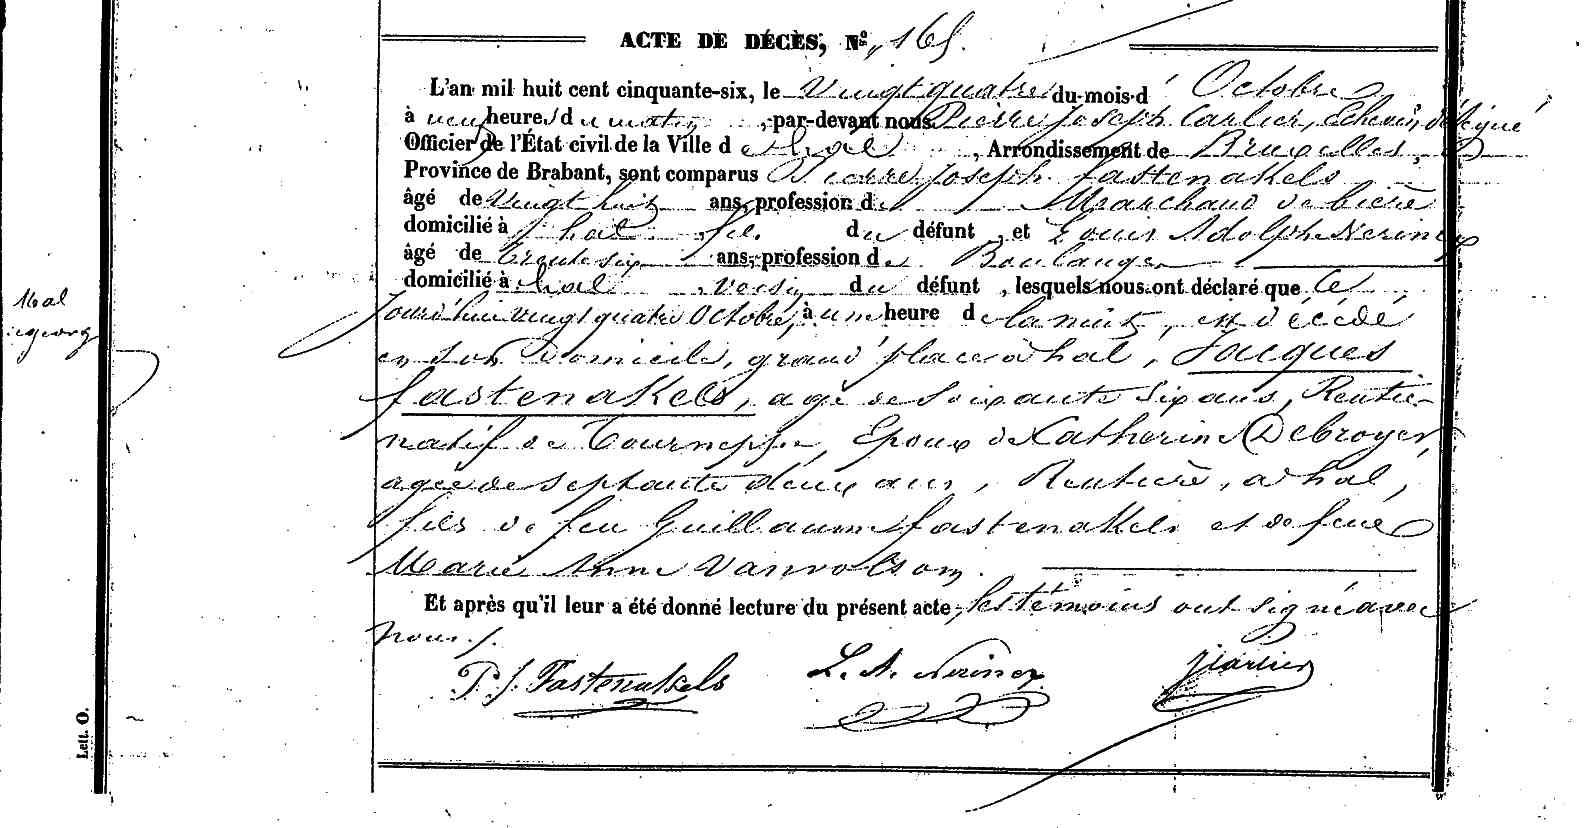 ACTE DE DÉCÈS, Nº 165.
L'an mil huit cent cinquante-six, le vingt quatre du mois d' Octobre
à neuf heures du matin, par-devant nous Pierre Joseph Carlier, Echevin délégué
Officier de l'État civil de la Ville de Hal, Arrondissement de Bruxelles,
Province de Brabant, sont comparus Pierre Joseph Fastenakels
âgé de vingt huit ans, profession de Marchand de bière
domicilié à hal, fils du défunt, et Louis Adolphe Nerincx
âgé de trente six ans, profession de Boulanger
domicilié à hal, voisin du défunt, lesquels nous ont déclaré que Ce
Jourd'hui vingt quatre Octobre, à une heure de la nuit, est décédé
en son domicile, grand' place à hal, Jacques
fastenakels, agé de soixante six ans, Rentier
natif de Tourneppe, Epoux de Catherine Debroyer,
agée de septante deux ans, Rentière, à hal,
fils de feu Guillaume fastenakels et de feue
Marie Anne Vanvolsom.
Et après qu'il leur a été donné lecture du présent acte, les témoins ont signé avec
nous./.
P. J. Fastenakels L. A. Nerincx PJCarlier
Lett. O.